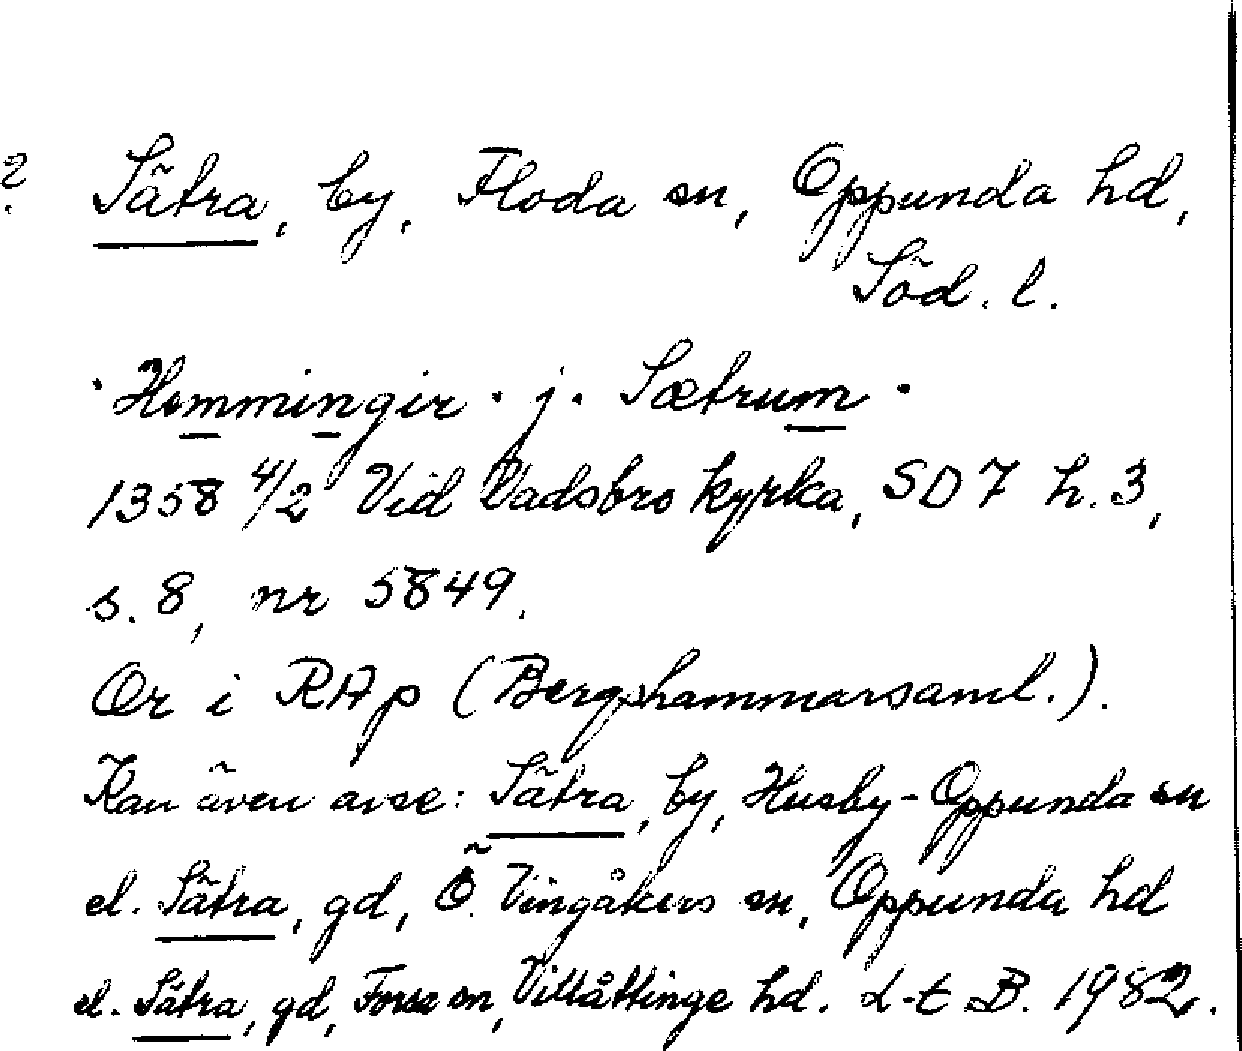 ? Sätra, by, Floda sn, Oppunda hd,
Söd. l.
· Hemmingir · j · Sætrum ·
1358 4/2 Vid Vadsbro kyrka, SD 7 h. 3,
s. 8, nr 5849.
Or i RAp (Bergshammarsaml.).
Kan även avse: Sätra, by, Husby-Oppunda sn
el. Sätra, gd, Ö. Vingåkers sn, Oppunda hd
el. Sätra, gd, Forssa sn, Villåttinge hd. L-t B. 1982.